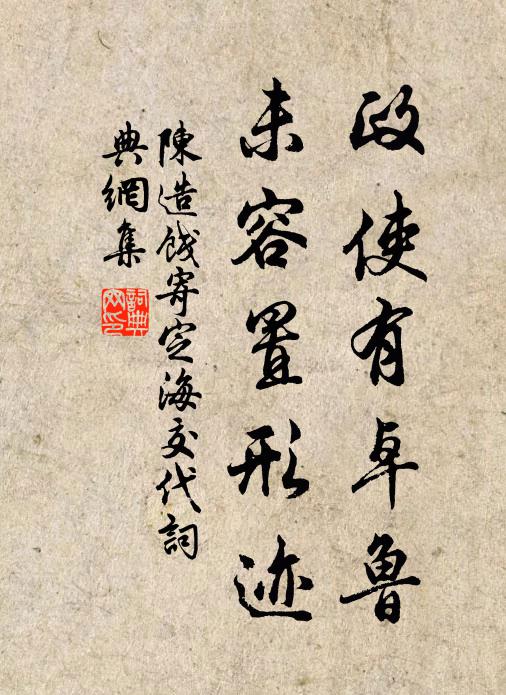 政使有卓魯
未容置形迹
陳造餞寄定海交代詞
典網集
詞典
网印